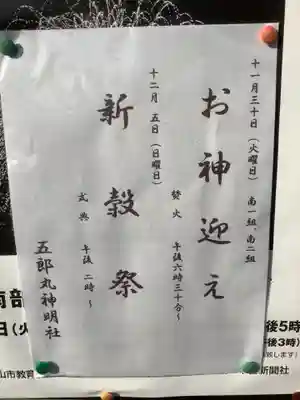 十一月三十日（火曜日）南一組、南二組
お神迎え
焚火　午後六時三十分〜
十二月　五日（日曜日）
新穀祭
式典　午後　二時　〜
五郎丸神明社
南部
日（火
山市教育
後5時
午後3時）
新聞社